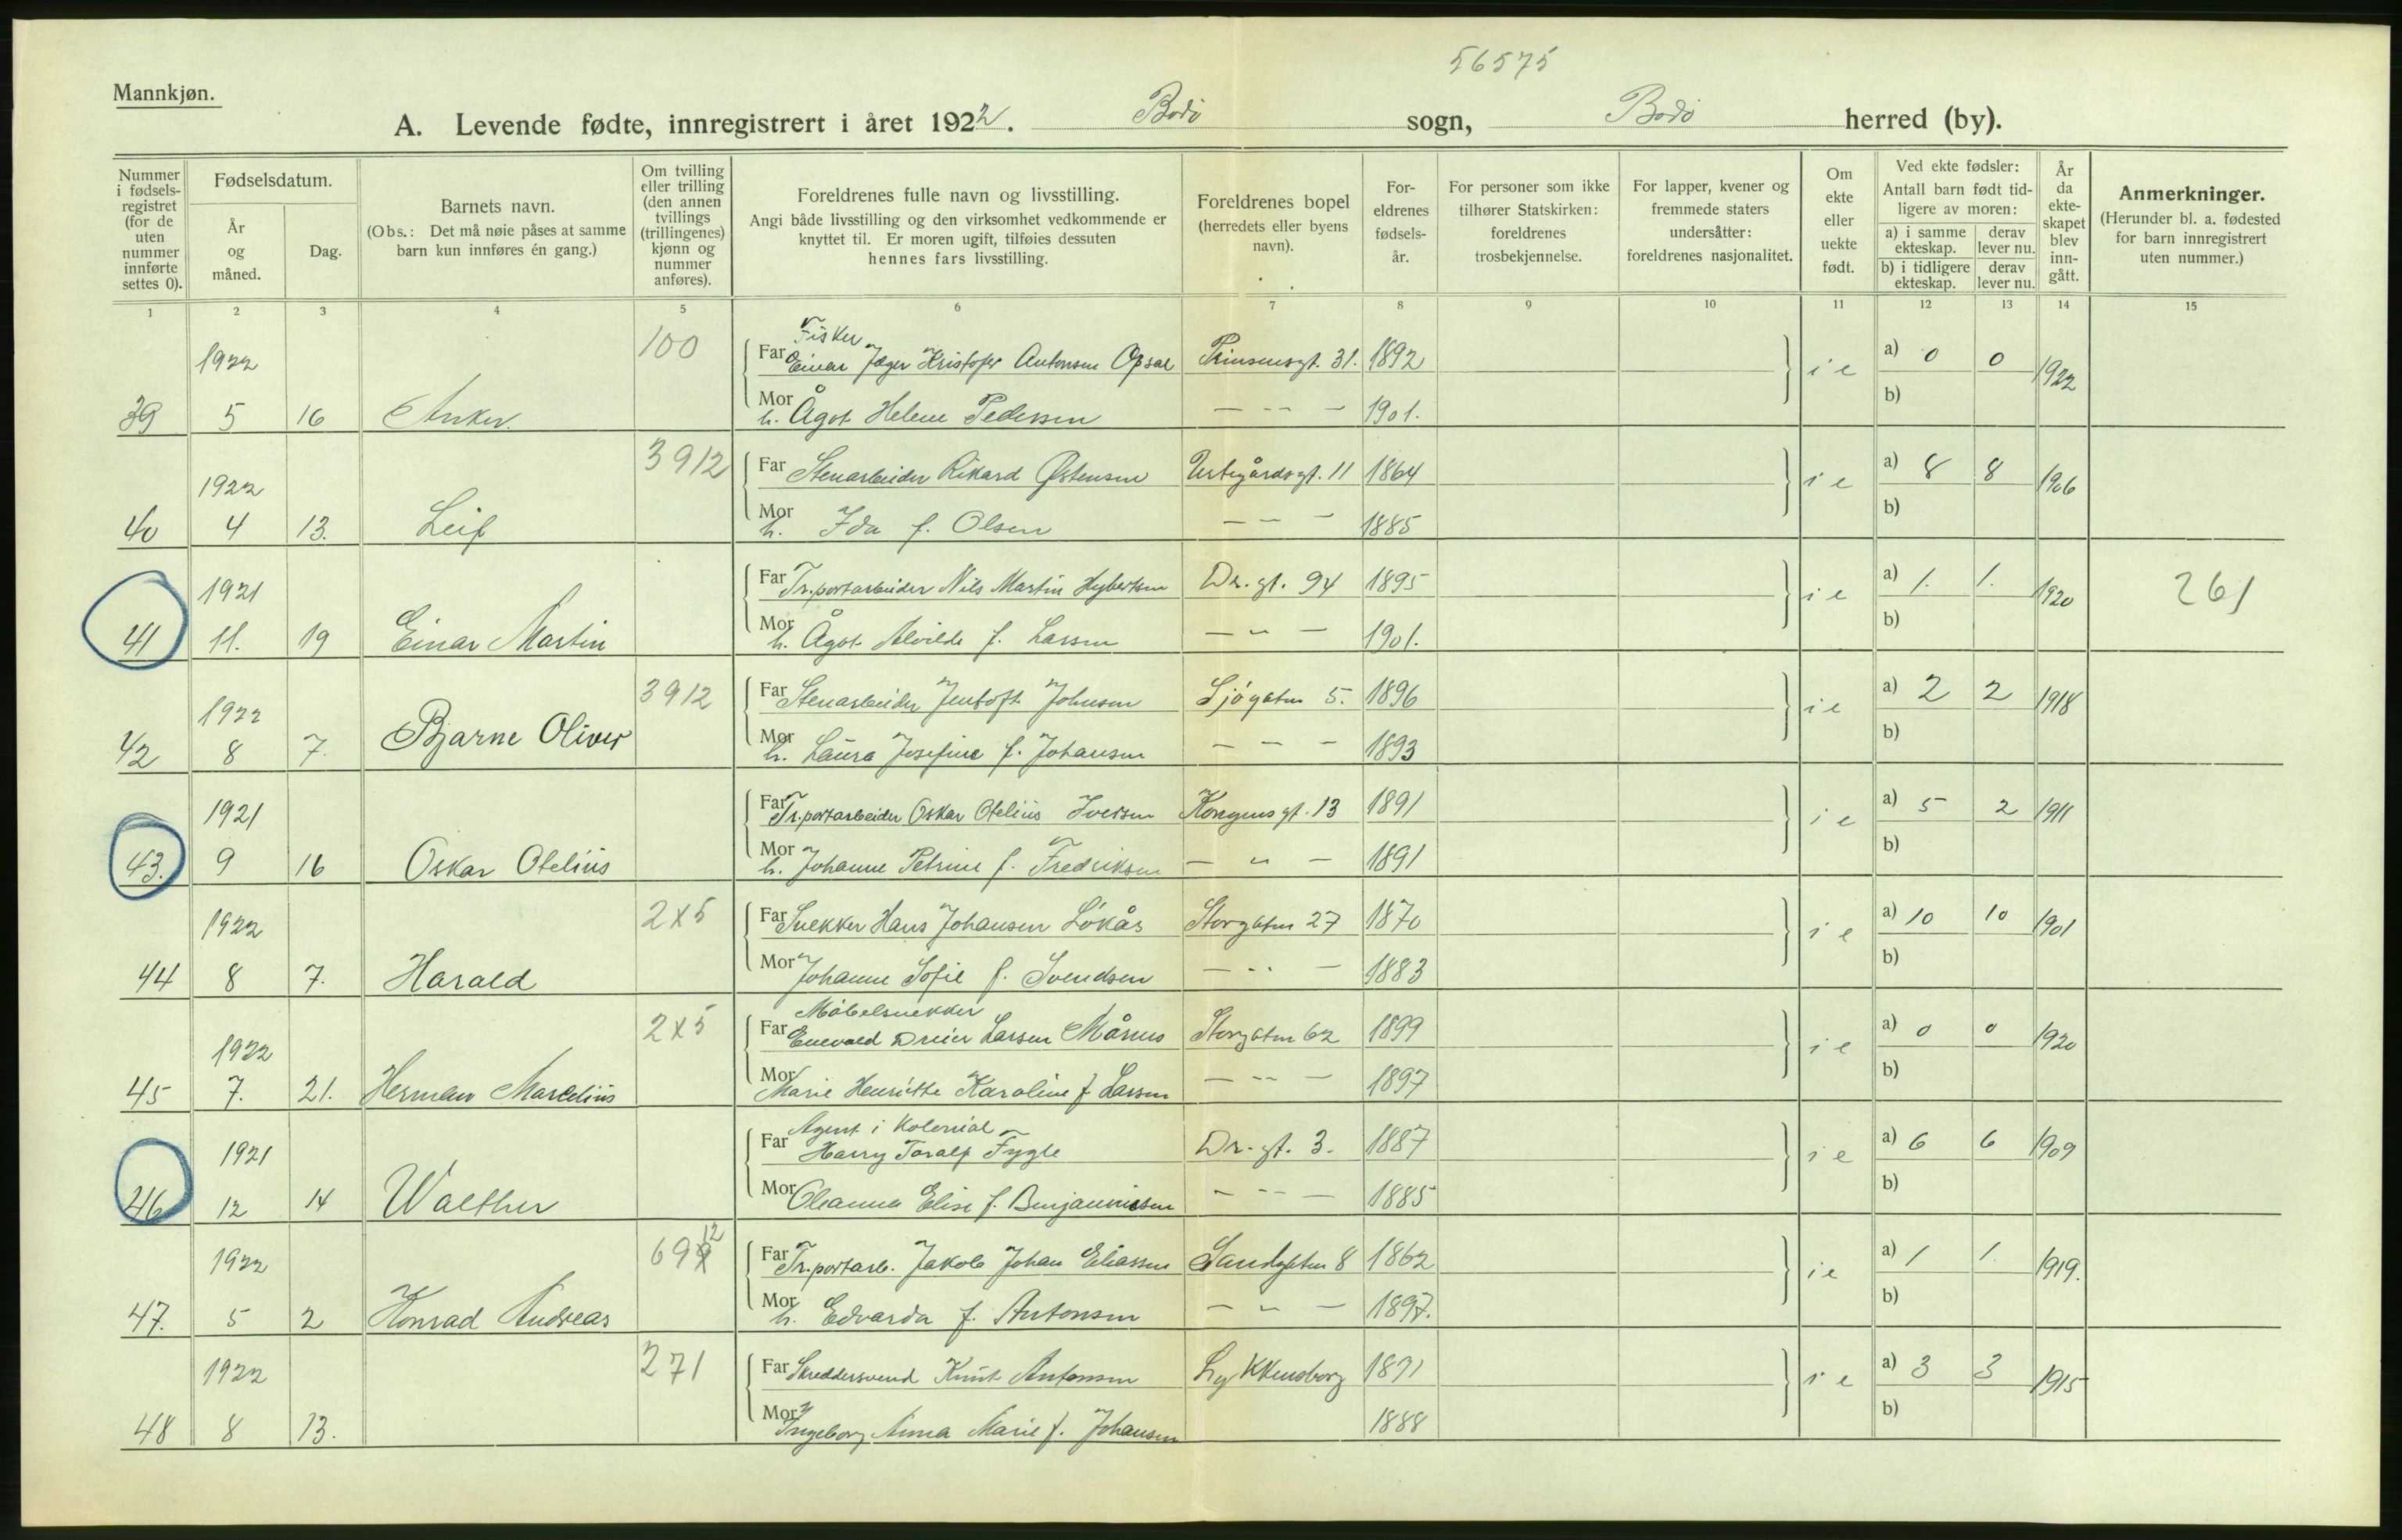 56575
Mannkjøn.
A. Levende fødte, innregistrert i året 1922. Bodø sogn, Bodø herred (by).
Nummer i fødsels-registret (for de uten nummer innførte settes 0).
Fødselsdatum.
År og måned.
Dag.
Barnets navn.
(Obs.: Det må nøie påses at samme barn kun innføres én gang.)
Om tvilling eller trilling (den annen tvillings (trillingenes) kjønn og nummer anføres).
Foreldrenes fulle navn og livsstilling.
Angi både livsstilling og den virksomhet vedkommende er knyttet til. Er moren ugift, tilføies dessuten hennes fars livsstilling.
Foreldrenes bopel (herredets eller byens navn).
For-eldrenes fødsels-år.
For personer som ikke tilhører Statskirken: foreldrenes trosbekjennelse.
For lapper, kvener og fremmede staters undersåtter: foreldrenes nasjonalitet.
Om ekte eller uekte født.
Ved ekte fødsler:
Antall barn født tid-ligere av moren:
a) i samme ekteskap. derav lever nu.
b) i tidligere ekteskap. derav lever nu.
År da ekte-skapet blev inn-gått.
Anmerkninger.
(Herunder bl. a. fødested for barn innregistrert uten nummer.)
1 2 3 4 5 6 7 8 9 10 11 12 13 14 15
100 Fisker
1922 Far Einar Jæger Kristofer Antonsen Opsal Prinsensgt. 31. 1892 i e a) 0 0 1922
39 5 16 Anker. Mor h. Ågot Helene Pedersen — -- — 1901. b)
3912
1922 Far Stenarbeider Rikard Østensen Urtegårdsgt. 11 1864 i e a) 8 8 1906
40 4 13. Leif Mor h. Ida f. Olsen — — — 1885 b)
1921 Far Tr.portarbeider Nils Martin Hybertsen Dr. gt. 94 1895 i e a) 1. 1. 1920 261
41 11. 19 Einar Martin Mor h. Ågot Alvilde f. Larsen — „ — 1901. b)
3912
1922 Far Stenarbeider Jentoft Johnsen Sjøgaten 5. 1896 i e a) 2 2 1918
42 8 7. Bjarne Oliver Mor h. Laura Josefine f. Johansen — — — 1893 b)
1921 Far Tr.portarbeider Oskar Otelius Iversen Kongensgt. 13 1891 i e a) 5 2 1911
43. 9 16 Oskar Otelius Mor h. Johanne Petrine f. Fredriksen — „ — 1891 b)
2x5
1922 Far Snekker Hans Johansen Løkås Storgaten 27 1870 i e a) 10 10 1901
44 8 7. Harald Mor Johanne Sofie f. Svendsen — -- — 1883 b)
2x5 Møbelsnekker
1922 Far Enevald Dreier Larsen Mårnes Storgaten 62 1899 i e a) 0 0 1920
45 7. 21. Herman Marelius Mor Marie Henriette Karoline f Larsen — -- — 1897 b)
Agent i Kolonial
1921 Far Harry Toralf Fygle Dr. gt. 3. 1887 i e a) 6 6 1909
46 12 14 Walther Mor Oleanna Elise f. Benjaminsen — -- — 1885 b)
699 12
1922 Far Tr.portarb. Jakob Johan Eliassen Sandgaten 8 1862 i e a) 1 1. 1919.
47. 5 2 Konrad Andreas Mor h. Edvarda f. Antonsen — „ — 1897. b)
271
1922 Far Skreddersvend Knut Antonsen Lykkensborg 1891 i e a) 3 3 1915
48 8 13. Mor Ingeborg Anna Marie f. Johansen 1888 b)